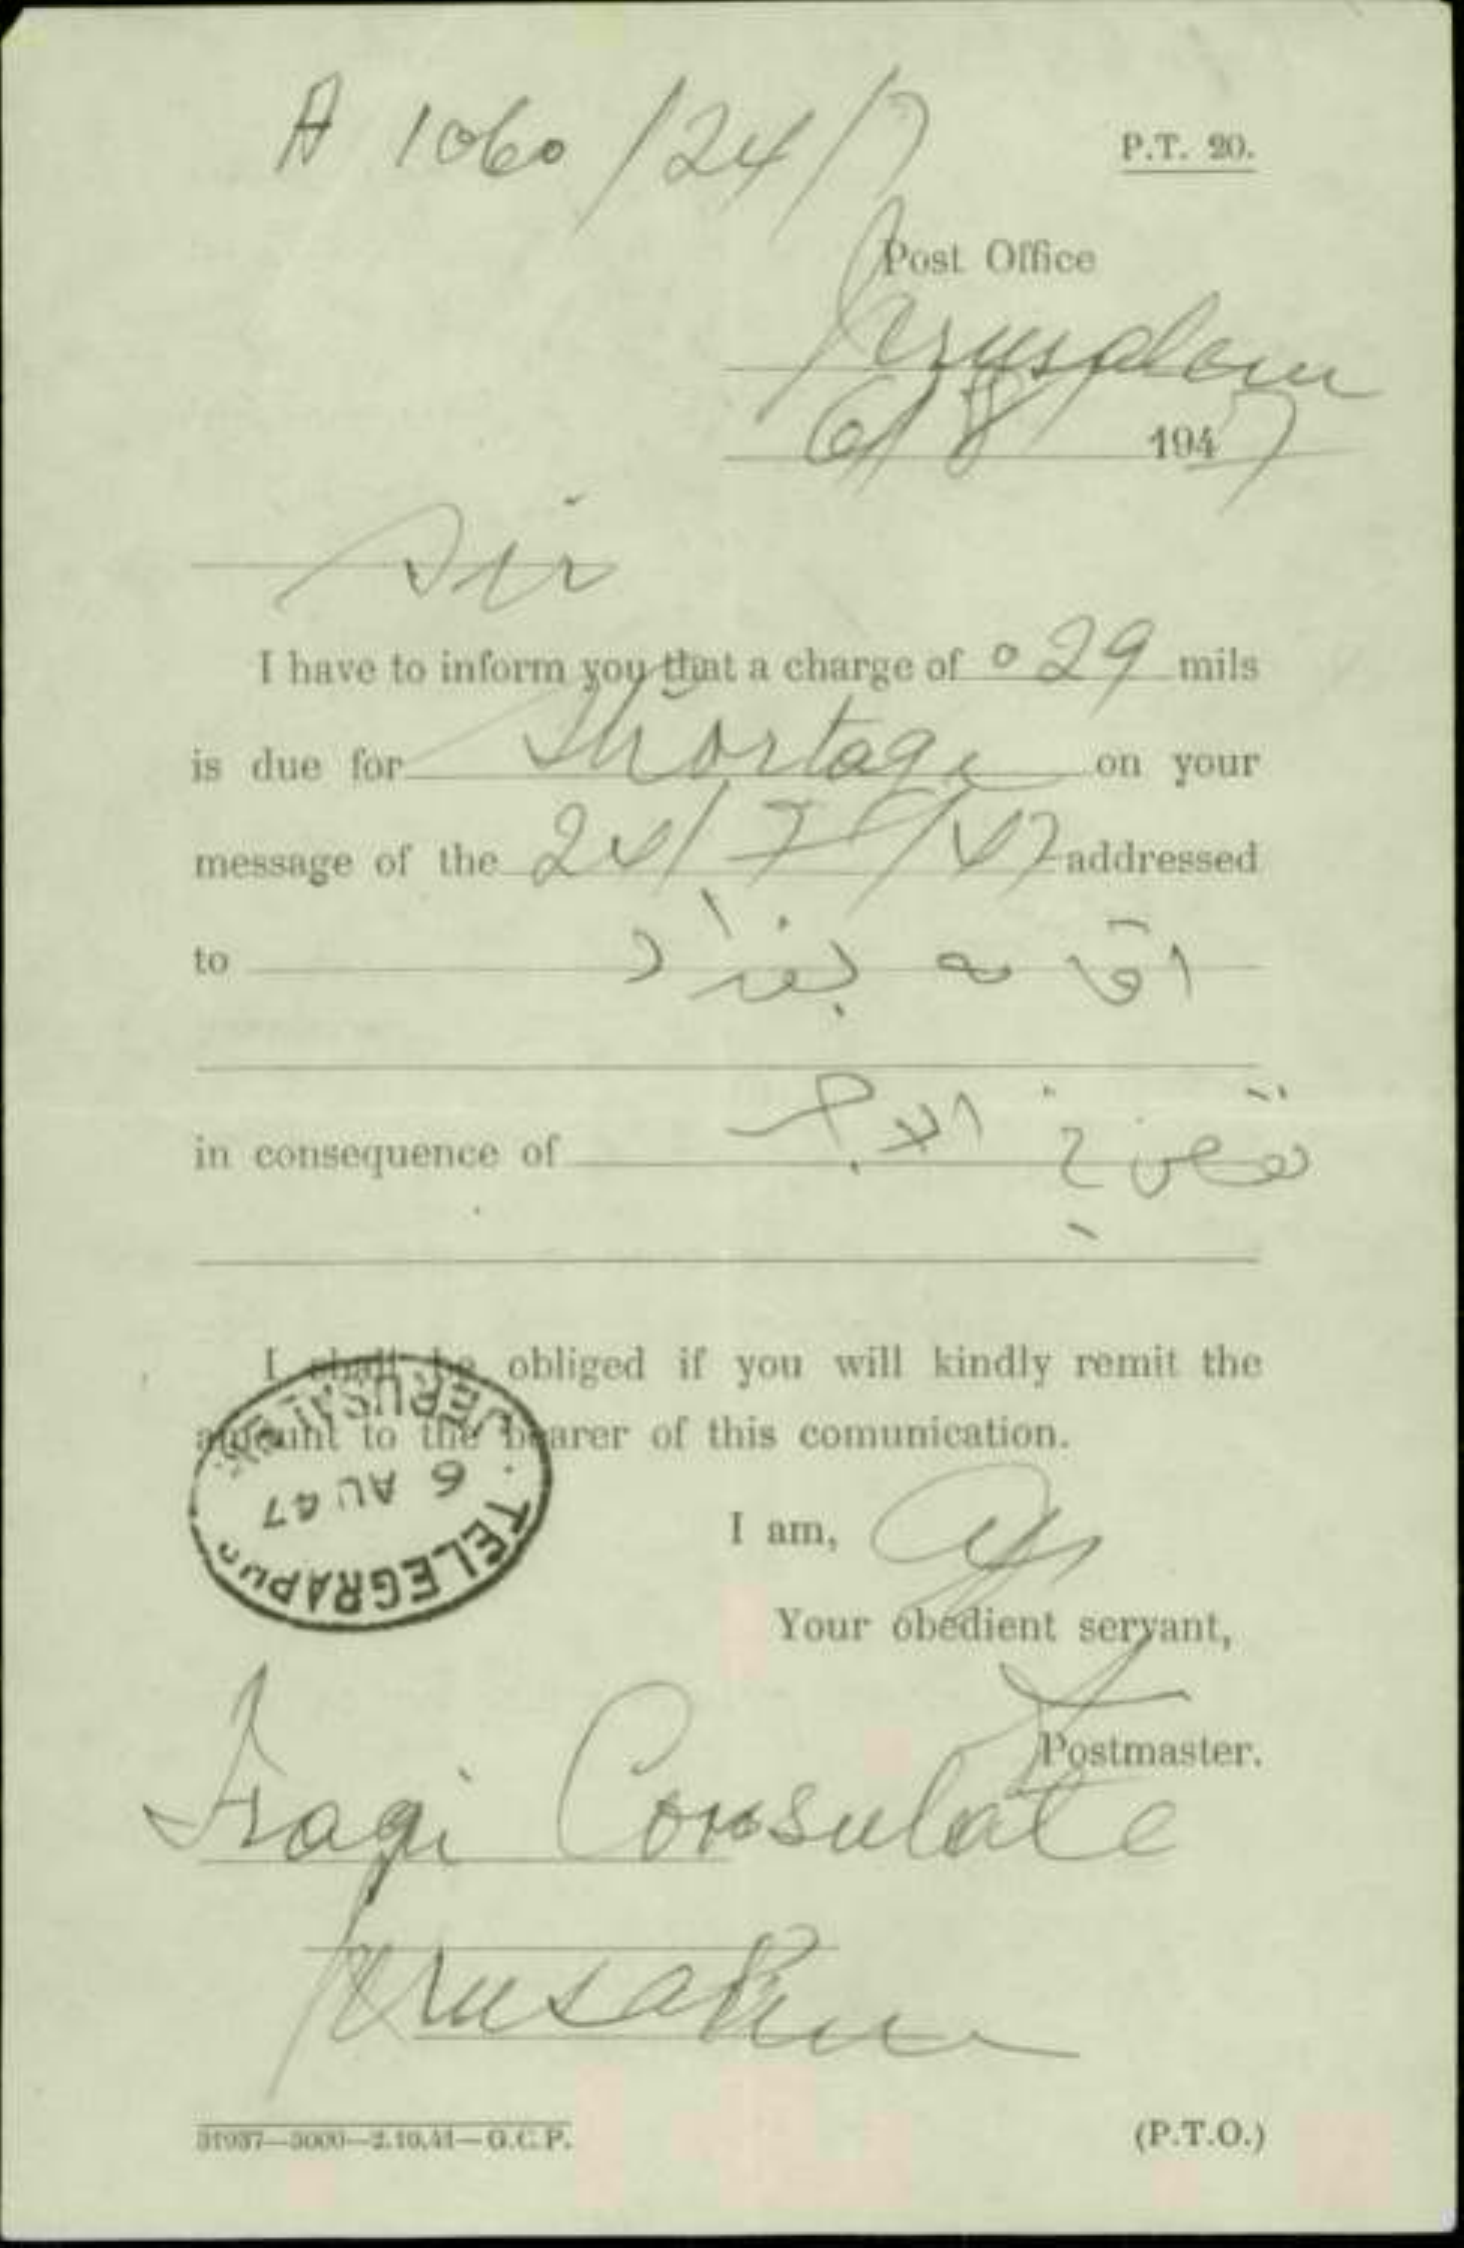 A 1060/24/7
P.T. 20.
Post Office
Jerusalem
6/8 1947
Sir
I have to inform you that a charge of 029 mils
is due for Shortage on your
message of the 24/7/47 addressed
to بغداد
in consequence of الاجر
I shall be obliged if you will kindly remit the
amount to the bearer of this comunication.
JERUSALEM
6 AU 47
TELEGRAPHS
I am,
Your obedient servant,
Postmaster.
Iraqi Consulate
Jerusalem
31937—5000—2.10.41—G.C.P.
(P.T.O.)